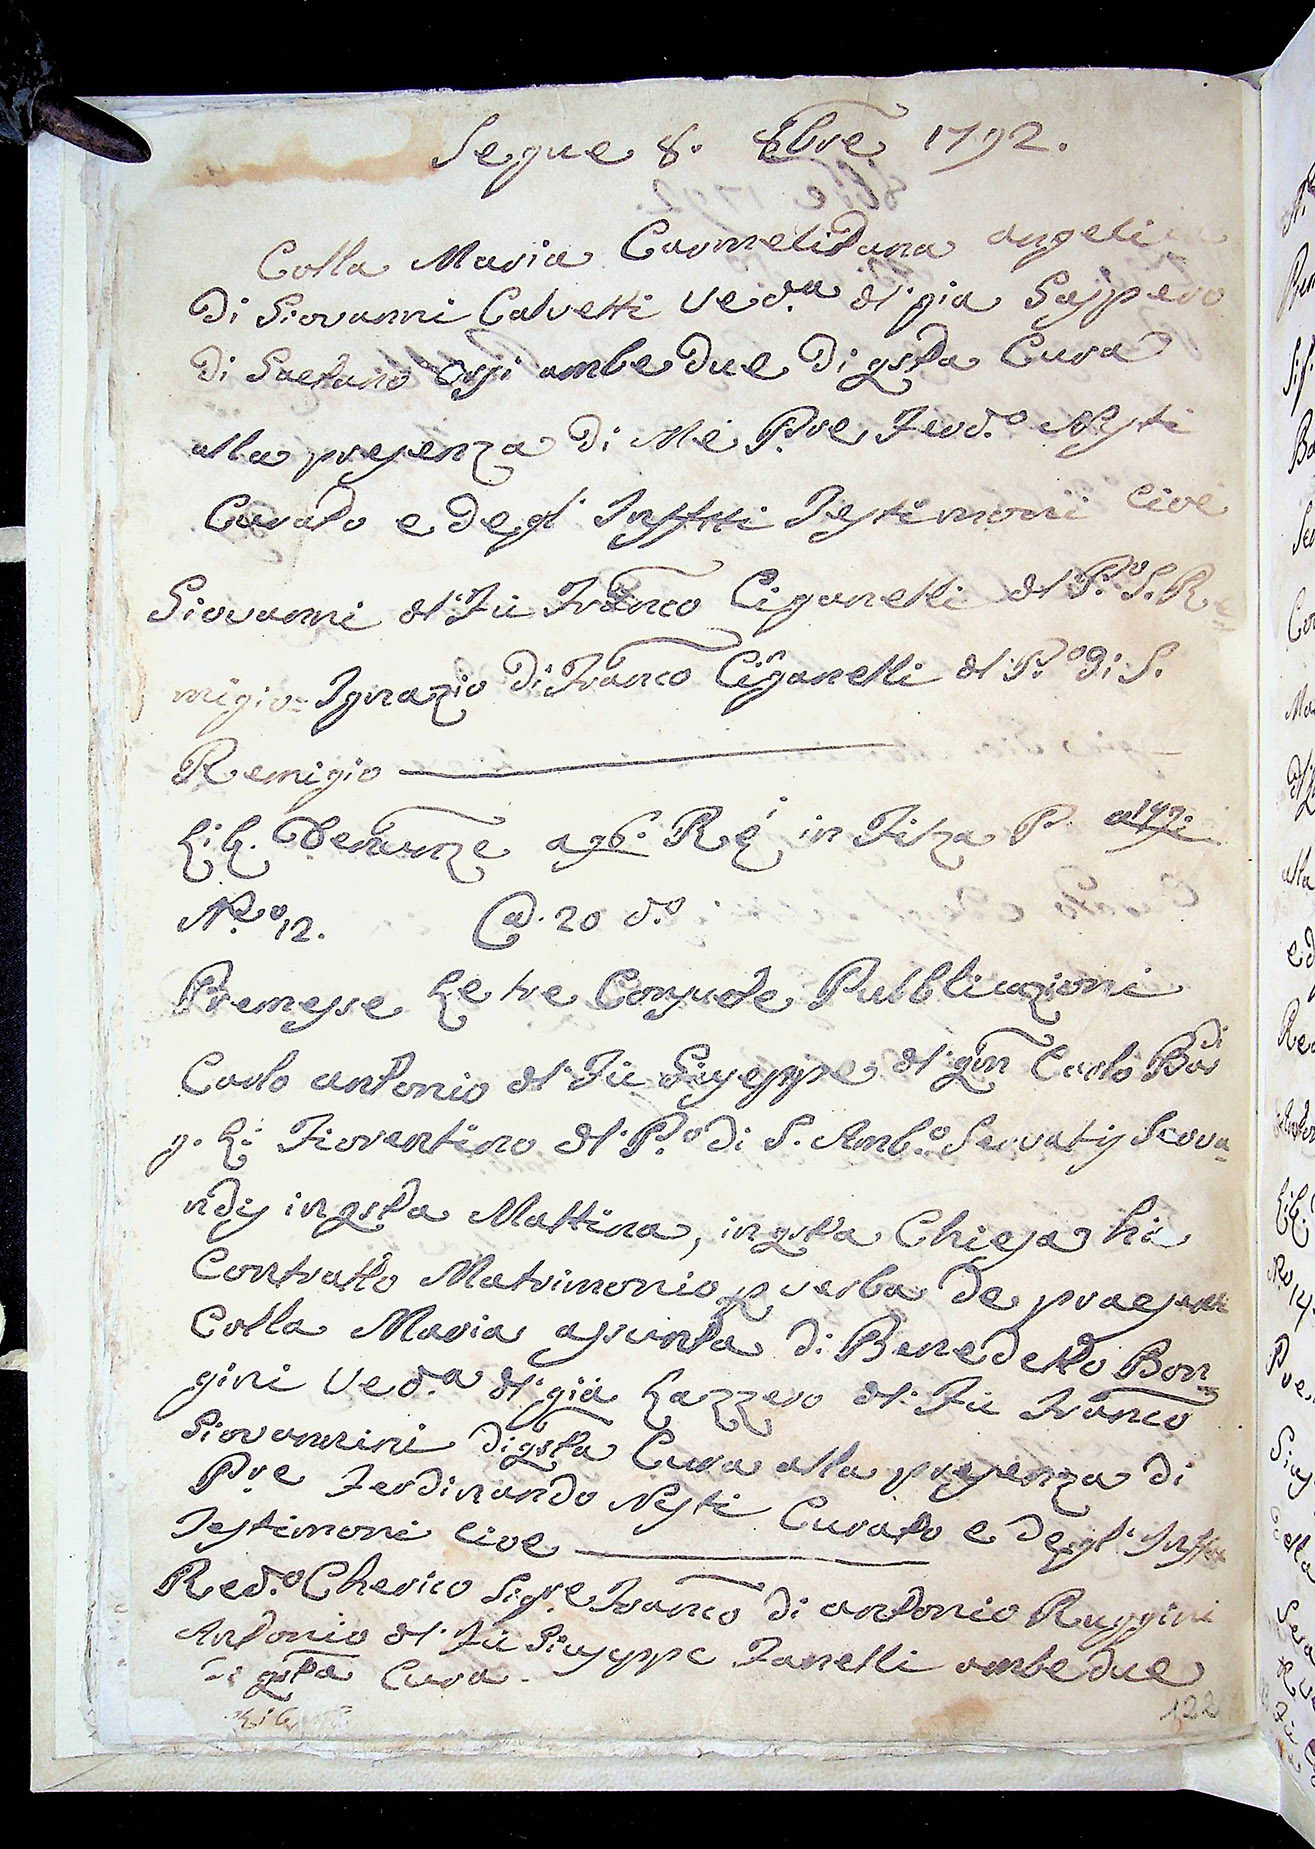 Segue 8. 8bre 1792.
Colla Maria Carmelitana Angeli
Di Giovanni Calvetti Ved.a dl' gia Gasspero
Di Gaetano Orsi ambedue Di qsta Cura
alla presenza Di Mé Pre. Ferd.o Nesti
Curato e Degl' Infftti Testimonii cioé
Giovanni dl' Fù Franco Ciganelli dl' P.o S. Re=
migio= Ignazio Di Franco Ciganelli dl' P.o di S.
Remigio
a 96. in Filza P. a 197:
N.o 12. Ad. 20 d.o
Premesse Le tre Consuete Pubblicazioni
Carlo Antonio dl' Fù Giuseppe dl' qm Carlo
Fiorentino dl' P.o di S. Amb.o Servatis Serva=
ndis in qsta Mattina, in qsta Chiesa hà
Contratto Matrimonio p verba de praesenti
Colla Maria Assunta di Benedetto Bon=
gini Ved.a dl' già Lazzero dl' Fù Franco
Giovannini di qsta Cura alla presenza di
Pre Ferdinando Nesti Curato e Degl'
Testimoni cioe
Red.o Cherico Sigre Franco di Antonio Ruggini
Antonio dl' Fù Giuseppe Zanelli ambedue
di qsta Cura.
122